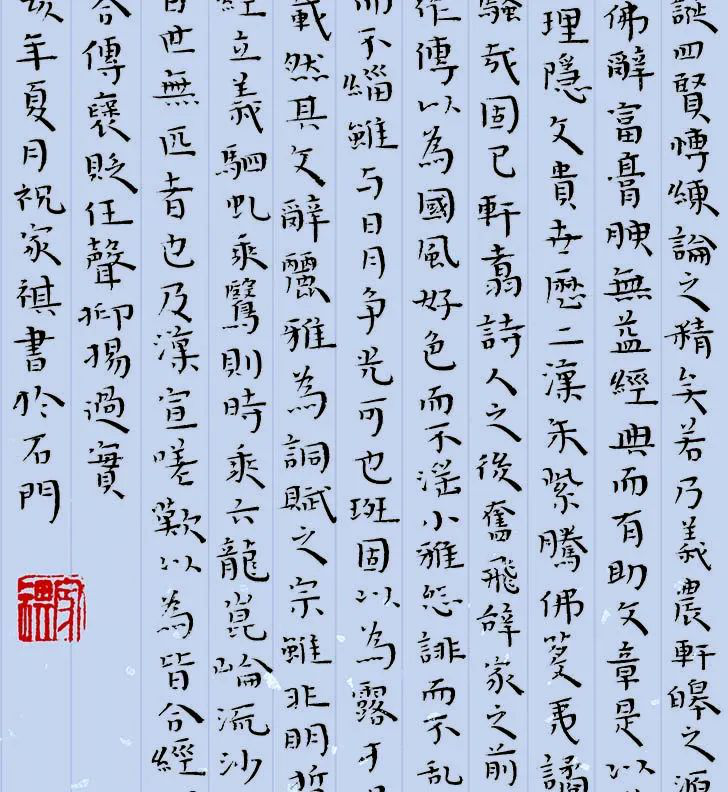 誕四賢博練論之精矣若乃義農軒皞之源
佛辭富膏腴無益經典而有助文章是以
理隱文貴世歷二漢朱紫騰佛芟夷譎
騷哉固已軒翥詩人之後奮飛辭家之前
作傳以為國風好色而不淫小雅怨誹而不乱
而不緇雖与日月争光可也班固以為露才
載然其文辭麗雅為詞賦之宗雖非明哲
經立義駟虬乘鷖則時乘六龍崑崙流沙
百世無匹者也及漢宣嗟歎以為皆合經
合傳褒貶任聲抑揚過實
亥年夏月祝家祺書於石門